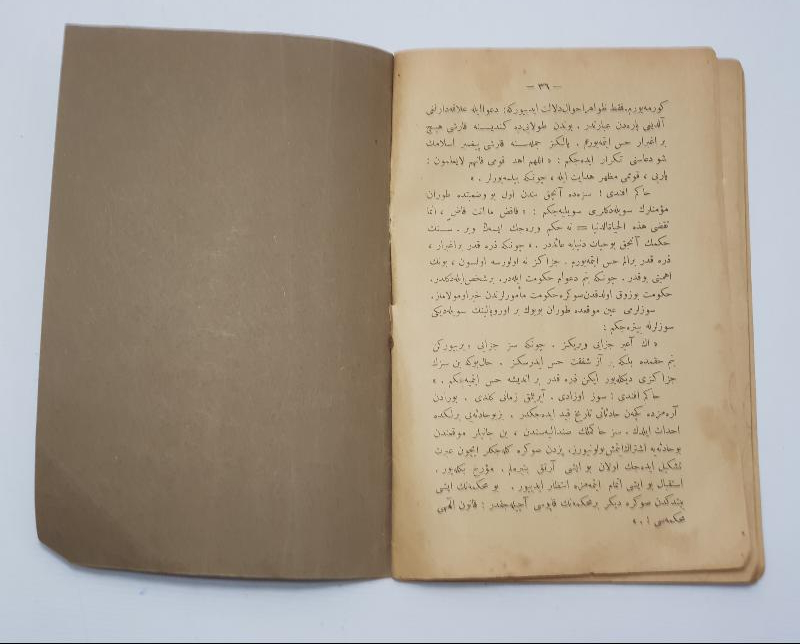 — ٣٦ —
كورمه‌يورم. فقط ظواهر احوال دلالت ايدييوركه: دعوا ايله علاقه‌دارلغى
آلديغى پاره‌دن عبارتدر. بوندن طولايى‌ده كنديسنه قارشى هيچ
بر اغبرار حس ايتمه‌يورم. يالكز جمله‌سنه قارشى پيغمبر اسلامك
شو دعاسنى تكرار ايده‌جكم: « اللهم اهد قومى فانهم لايعلمون:
ياربى، قوممى مظهر هدايت ايله، چونكه بيلمه‌يورلر. »
حاكم افندى! سزه‌ده آنجق بندن اول بو وضعيتده طوران
مؤمنلرك سويله‌دكلرى سويليه‌جكم: « فاقض ما انت قاض، انما
تقضى هذه الحياةالدنيا = نه حكم ويره‌جك ايسه‌ك وير. سنك
حكمك آنجق بوحيات دنيايه عائددر. » چونكه ذره قدر براغبرار،
ذره قدر برالم حس ايتمه‌يورم. جزاكز نه اولورسه اولسون، بونك
اهميتى يوقدر. چونكه بنم دعوام حكومت ايله‌در. برشخص ايله دكلدر.
حكومت بوزوق اولدقدن‌سوكره حكومت مأمورلرندن خير اومولاماز.
سوزلرمى عين موقعده طوران بويوك بر اوروپالينك سويله‌ديكى
سوزلرله بيتره‌جكم:
« اك آغير جزايى ويريكز. چونكه سز جزايى ويرييوركن
بنم حقمده بلكه بر آز شفقت حس ايدرسكز. حال‌بوكه بن سزك
جزاكزى ديكله‌يور ايكن ذره قدر بر انديشه حس ايتميه‌جكم. »
حاكم افندى! سوز اوزادى. آيريلمق زمانى كلدى. بورادن
آره‌مزده كچن حادثاتى تاريخ قيد ايده‌جكدر. بوحادثه‌يى برلكده
احداث ايله‌دك. سز حاكملك صنداليه‌سندن، بن جانيلر موقعندن
بوحادثه‌يه اشتراك ايتمش بولونيورز. بزدن صوكره كله‌جكلر ايچون عبرت
تشكيل ايده‌جك اولان بو ايشى آرتق بتيره‌لم. مؤرخ بكله‌يور.
استقبال بو ايشى اتمام ايتمه‌مزه انتظار ايدييور. بو محكمه‌نك ايشى
بتدكدن صوكره ديكر برمحكمه‌نك قاپوسى آچيله‌جقدر: قانون الهى
محكمه‌سى!.. »